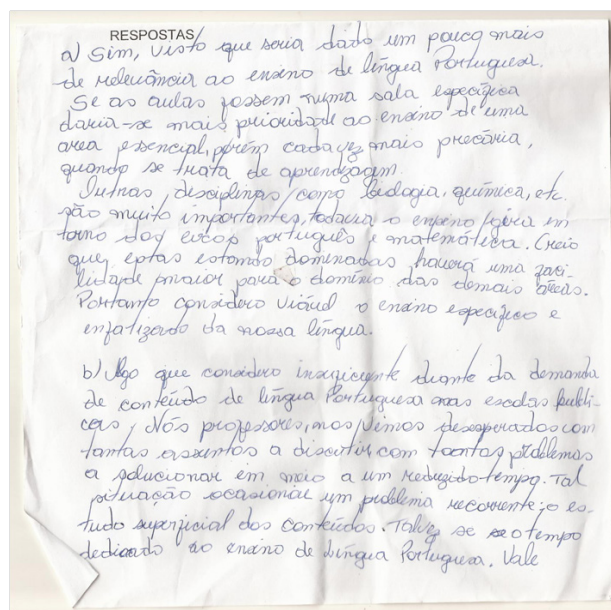 RESPOSTAS
a) Sim, visto que seria dado um pouco mais
de relevância ao ensino de língua Portuguesa.
Se as aulas fossem numa sala específica
daria-se mais prioridade ao ensino de uma
area essencial, porém cada vez mais precária,
quando se trata de aprendizagem.
Outras disciplinas como biologia, química, etc.
são muito importantes, todavia o ensino gira em
torno dos eixos português e matemática. Creio
que estas estando dominadas haverá uma faci-
lidade maior para o domínio das demais áreas.
Portanto considero viável o ensino específico e
enfatizado da nossa língua.
b) Algo que considero insuficiente diante da demanda
de conteúdo de língua Portuguesa nas escolas públi-
cas. Nós professores, nos vemos desesperados com
tantos assuntos a discutir, com tantos problemas
a solucionar em meio a um reduzido tempo. Tal
situação ocasiona um problema recorrente: o es-
tudo superficial dos conteúdos. Talvez se o tempo
dedicado ao ensino de Língua Portuguesa. Vale